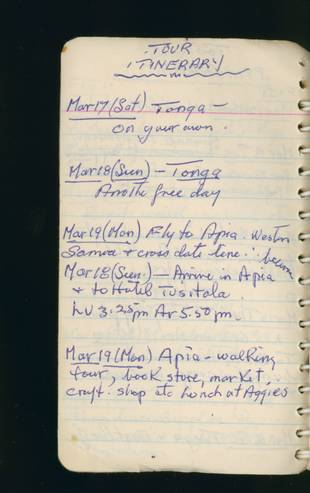 TOUR
ITINERARY
Mar 17 (Sat) Tonga -
on your own.
Mar 18 (Sun) - Tonga
Another free day
Mar 19 (Mon) Fly to Apia. Westn
Samoa & cross date line ∴ becom
Mar 18 (Sun.) - Arrive in Apia
& to Hotel Tusitala.
LV 3.25pm Ar 5.50pm.
Mar 19 (Mon) Apia - walking
tour, book store, market,
craft. shop etc Lunch at Aggies